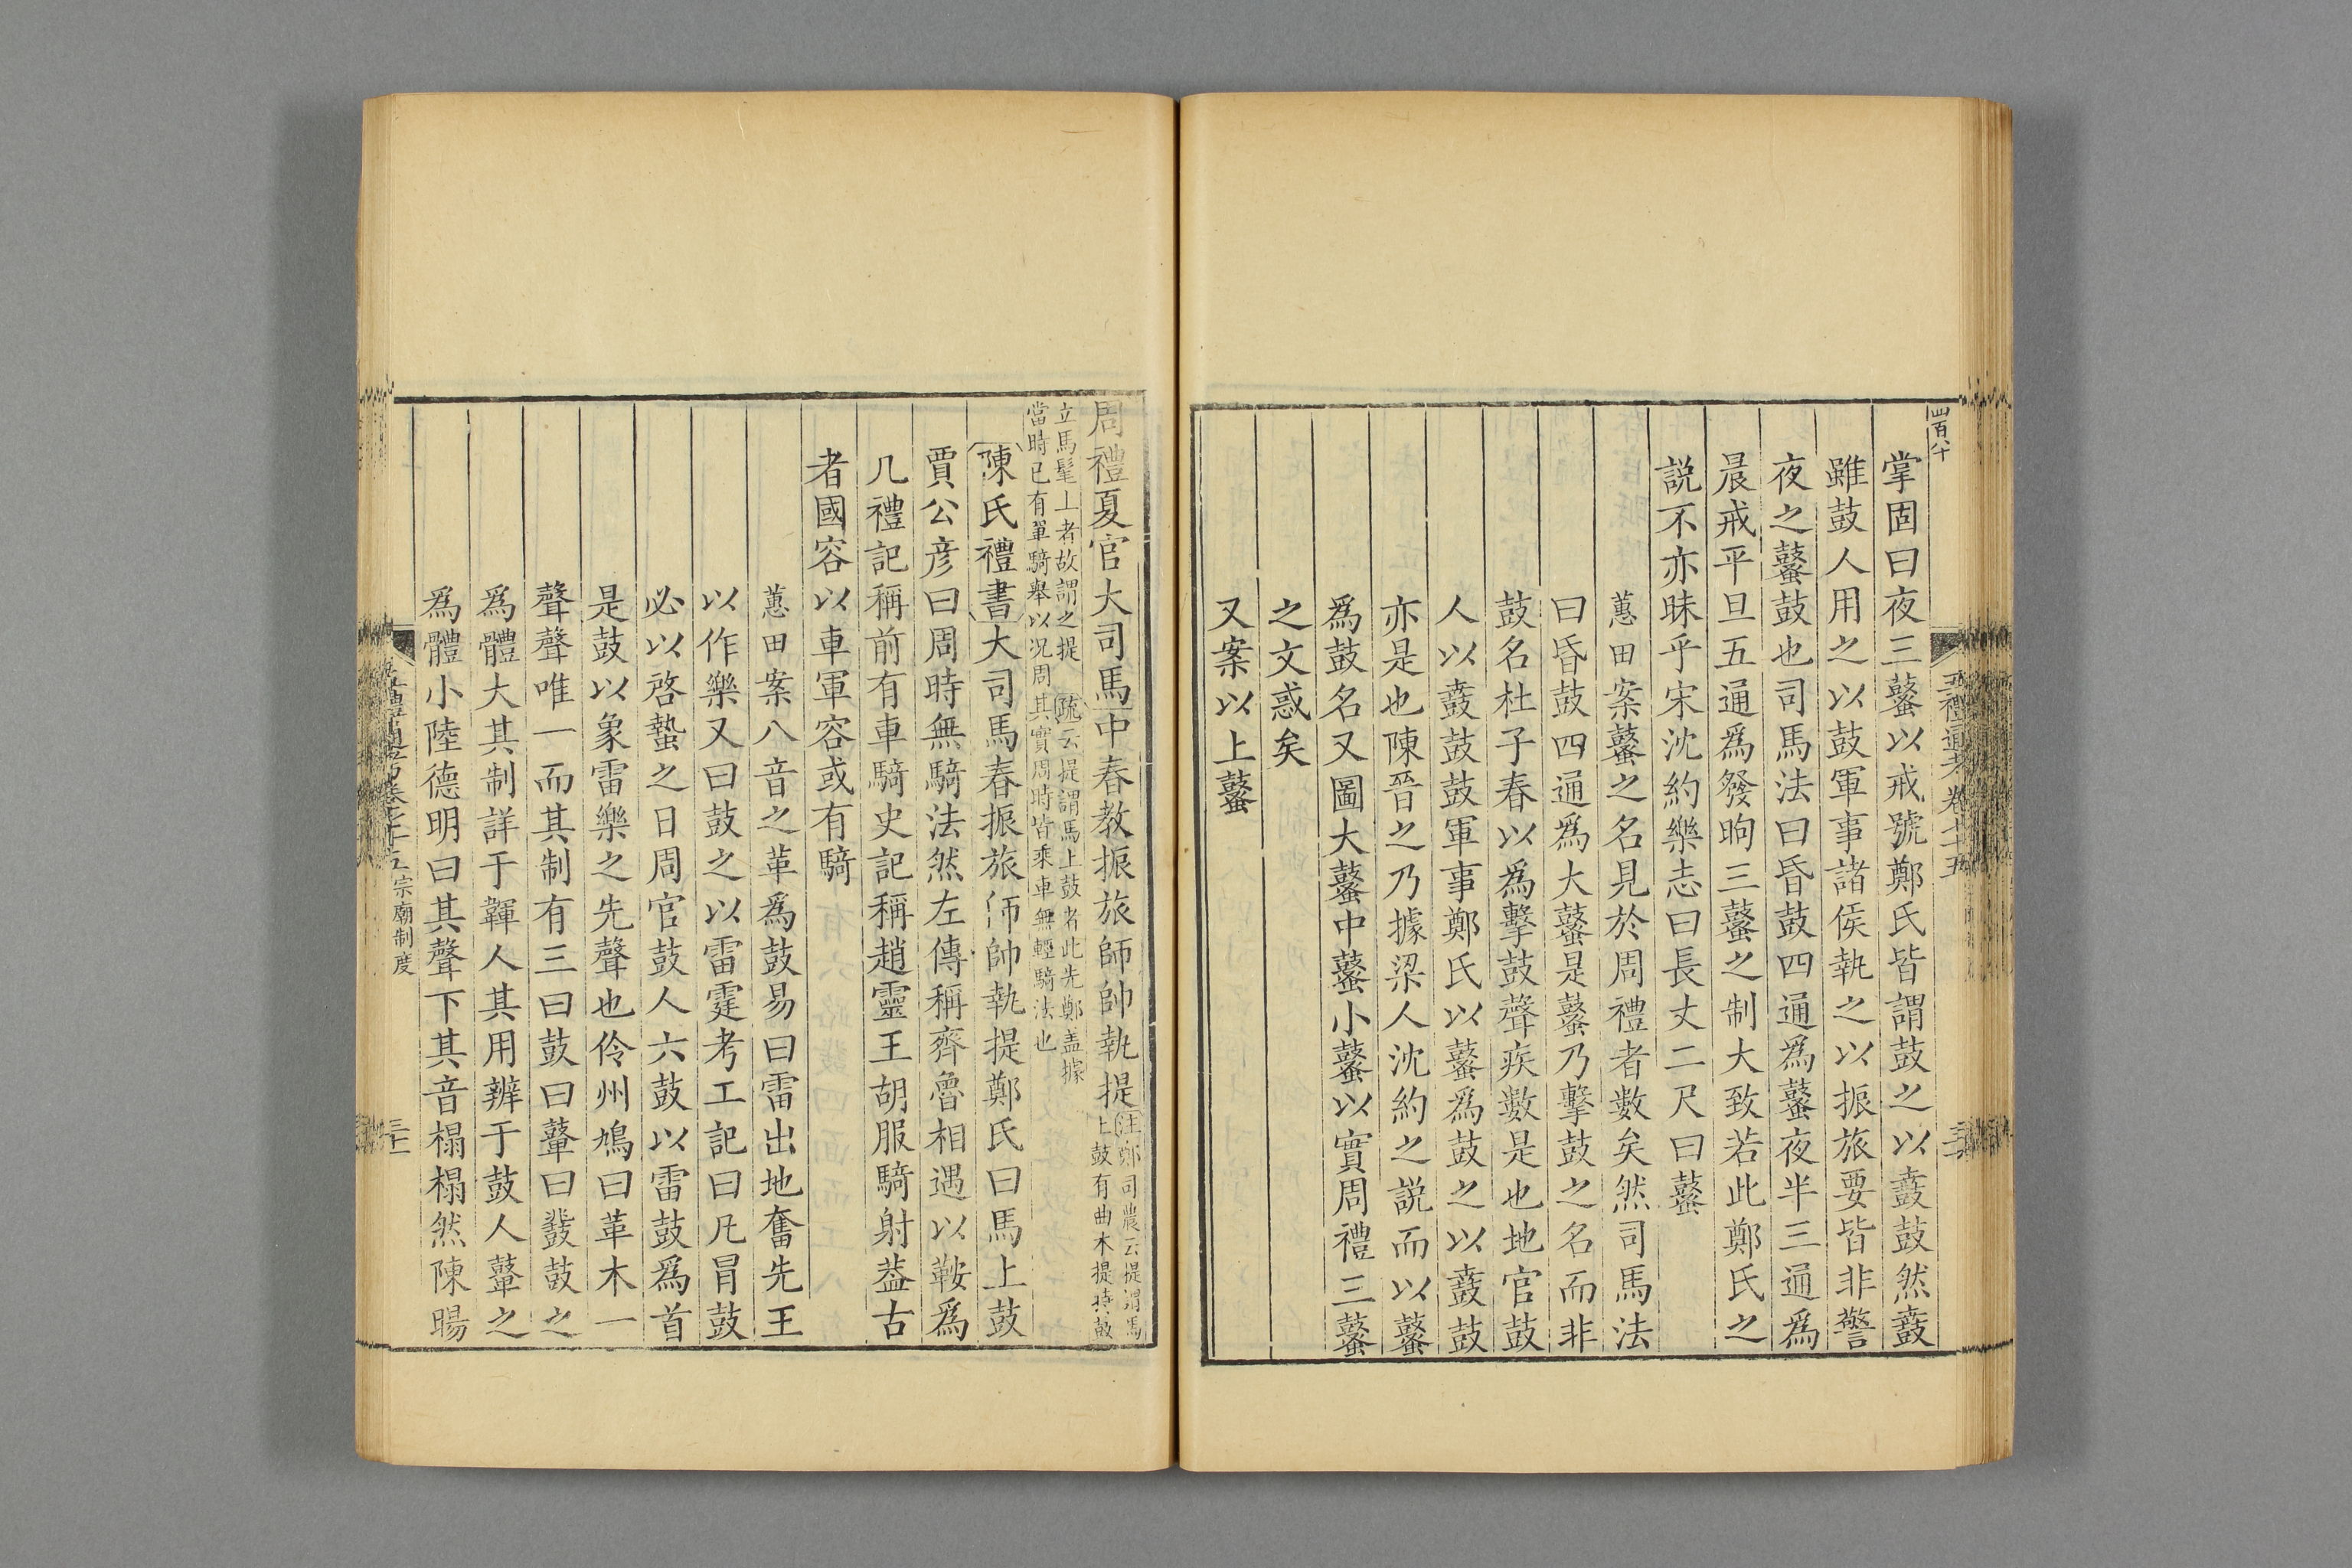 掌固曰夜三鼜以戒號鄭氏皆謂鼓之以鼖鼓然鼖
雖鼓人用之以鼓軍事諸侯執之以振旅要皆非警
夜之鼜鼓也司馬法曰昏鼓四通爲鼜夜半三通爲
晨戒平旦五通爲發昫三鼜之制大致若此鄭氏之
説不亦昧乎宋沈約樂志曰長丈二尺曰鼜
蕙田案鼜之名見於周禮者數矣然司馬法
曰昏鼓四通爲大鼜是鼜乃擊鼓之名而非
鼓名杜子春以爲擊鼓聲疾數是也地官鼓
人以鼖鼓鼓軍事鄭氏以鼜爲鼓之以鼖鼓
亦是也陳晉之乃據梁人沈約之説而以鼜
爲鼓名又圖大鼜中鼜小鼜以實周禮三鼜
之文惑矣
又案以上鼜
周禮夏官大司馬中春教振旅師帥執提
注鄭司農云提謂馬
上鼓有曲木提持鼓
立馬髦上者故謂之提 疏云提謂馬上鼓者此先鄭盖據
當時已有單騎舉以况周其實周時皆乘車無輕騎法也
陳氏禮書大司馬春振旅師帥執提鄭氏曰馬上鼓
賈公彦曰周時無騎法然左傳稱齊魯相遇以鞍爲
几禮記稱前有車騎史記稱趙靈王胡服騎射葢古
者國容以車軍容或有騎
蕙田案八音之革爲鼓易曰雷出地奮先王
以作樂又曰鼓之以雷霆考工記曰凡冒鼓
必以啓蟄之日周官鼓人六鼓以雷鼓爲首
是鼓以象雷樂之先聲也伶州鳩曰革木一
聲聲唯一而其制有三曰鼓曰鼙曰鼗鼓之
爲體大其制詳于韗人其用辨于鼓人鼙之
爲體小陸德明曰其聲下其音榻榻然陳暘
五禮通考卷七十五
宗廟制度